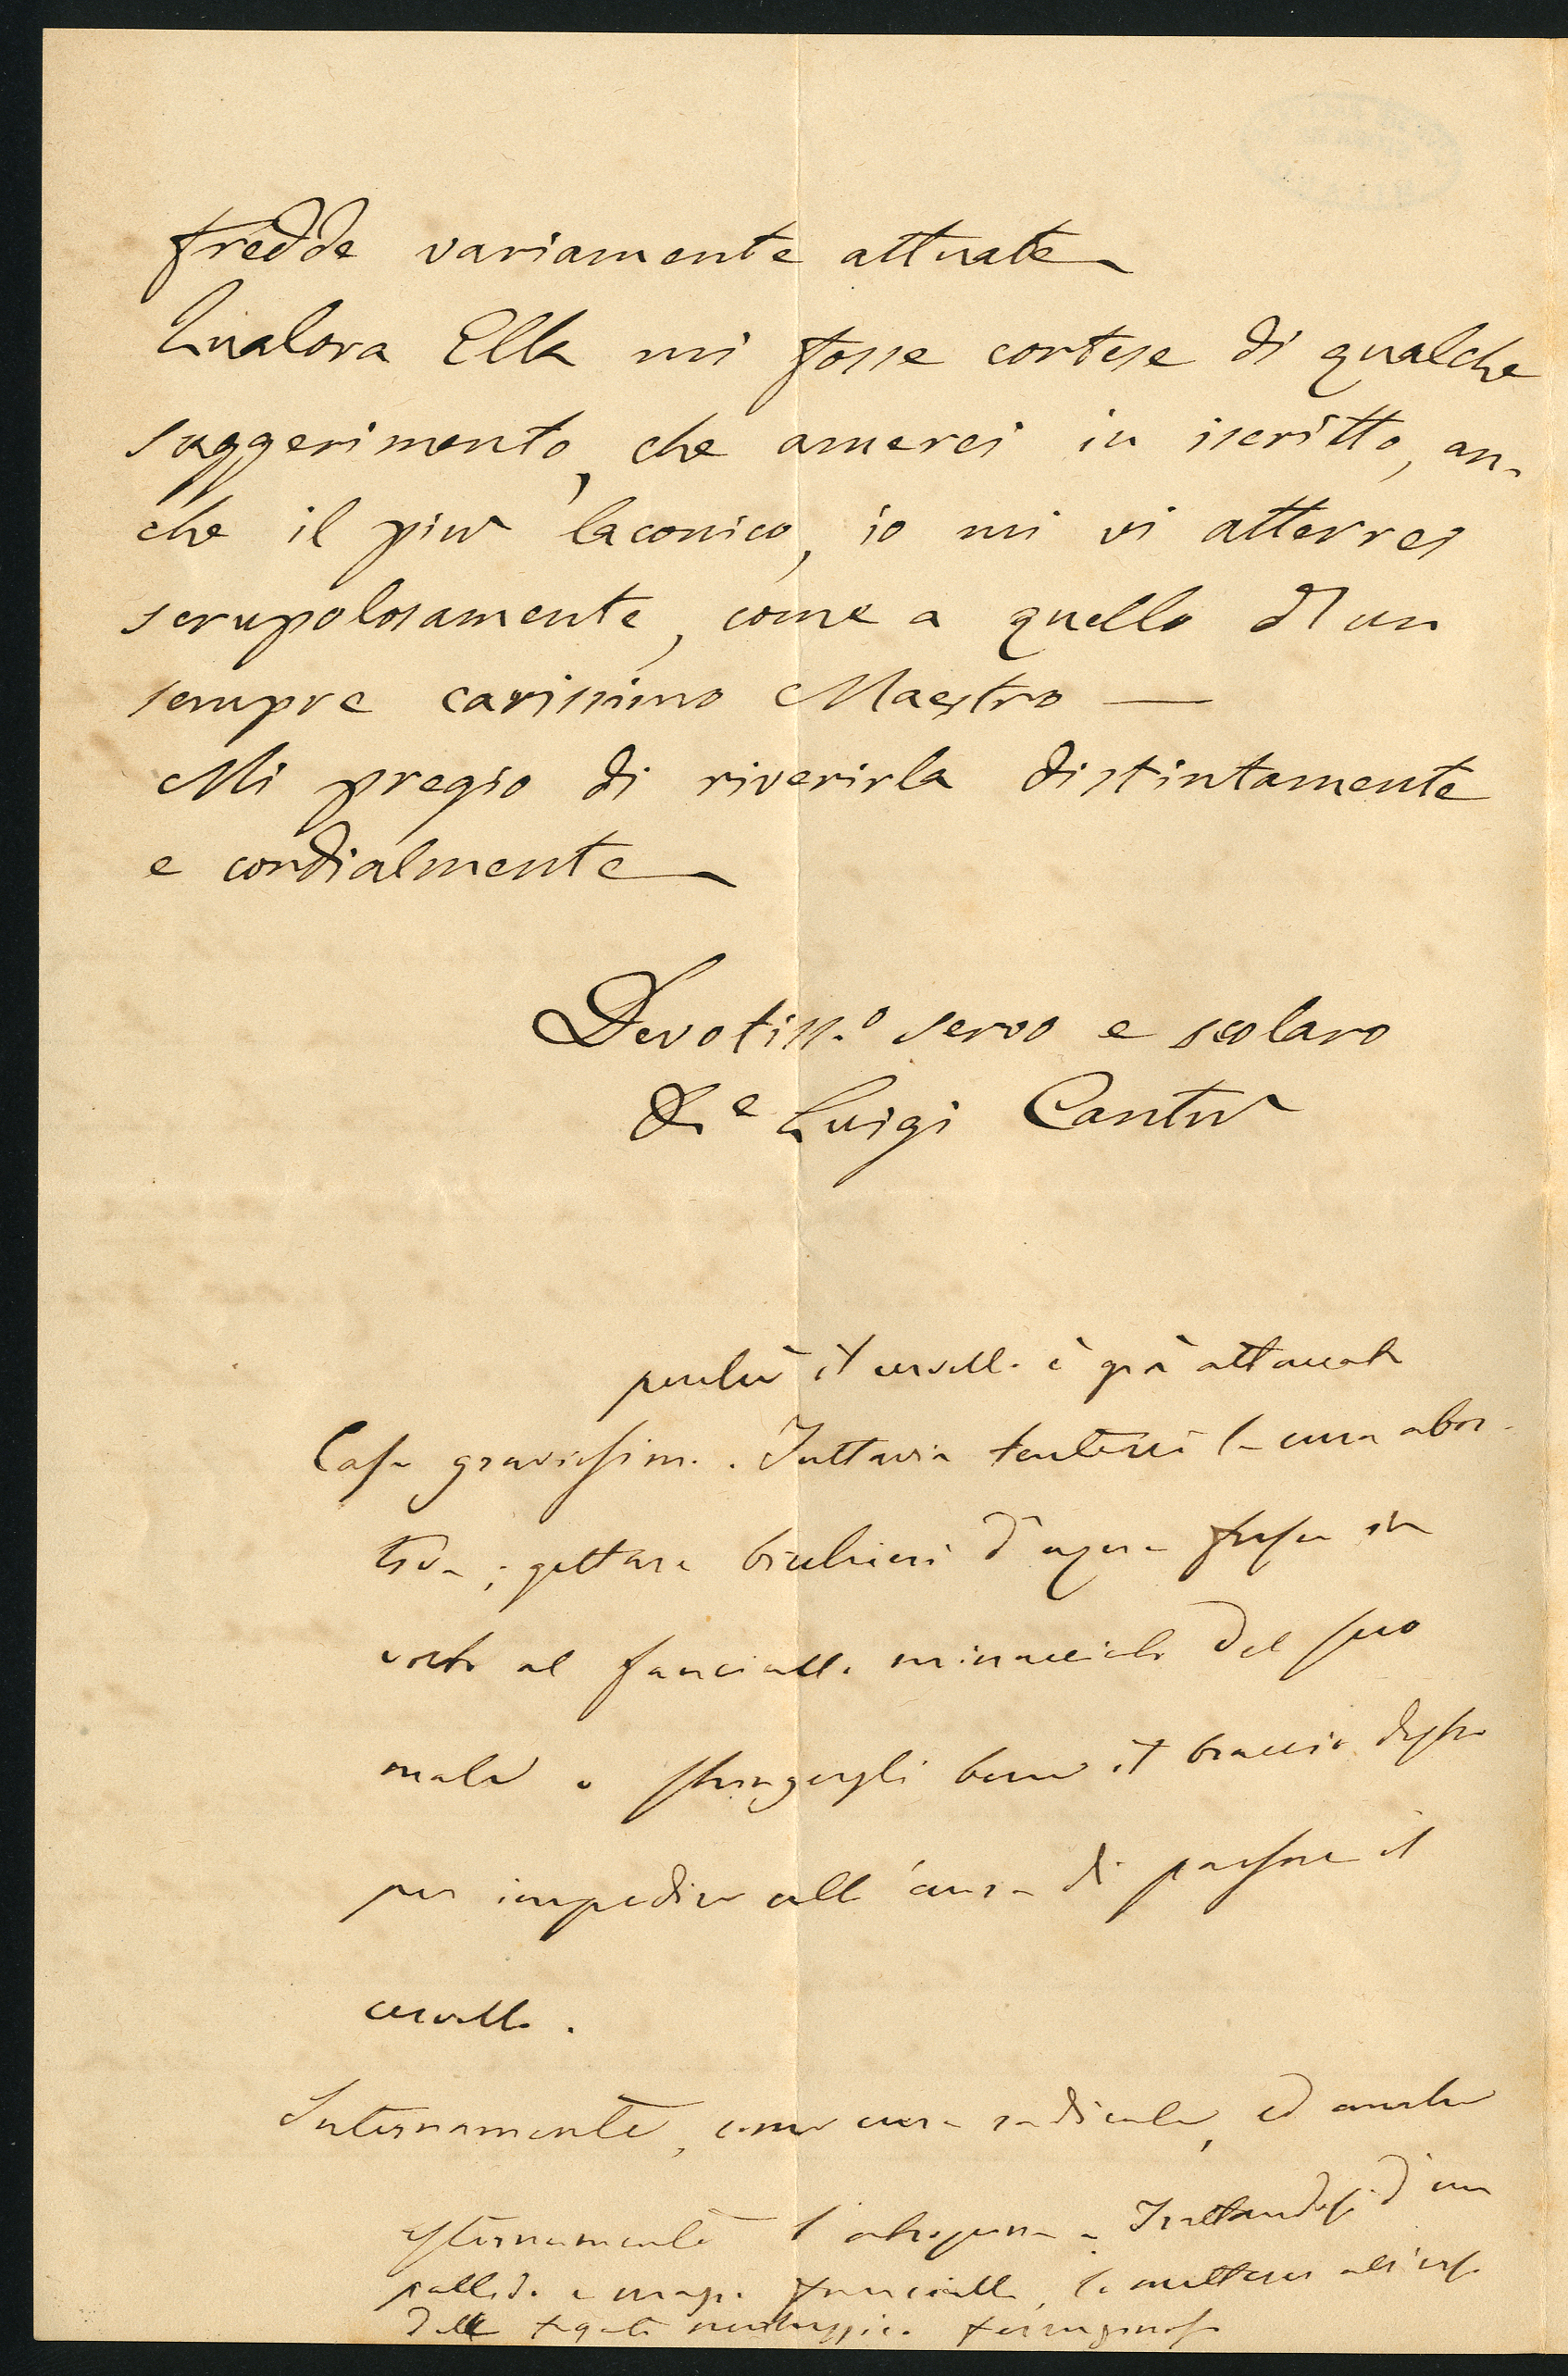 fredde variamente attuate
Qualora Ella mi fosse cortese di qualche
suggerimento, che amerei in iscritto, an-
che il più laconico, io mi vi atterrei
scrupolosamente, come a quello d'un
sempre carissimo Maestro —
Mi pregio di riverirla distintamente
e cordialmente
Devotiss.o servo e scolaro
D.e Luigi Cantù
perchè il cervello è già attaccato
Caso gravissimo. Tuttavia tenterei la cura abor-
tiva; gettare bicchieri d'acqua fresca in
volto al fanciullo minacciato del suo
male e stringergli bene il braccio destro
per impedire all'aura di passare il
cervello.
Internamente, come cura radicale, ed anche
esternamente l'atropina. Trattandosi d'un
pallido e magro fanciullo, lo metterei all'uso
delle fegato merluzzico ferruginoso